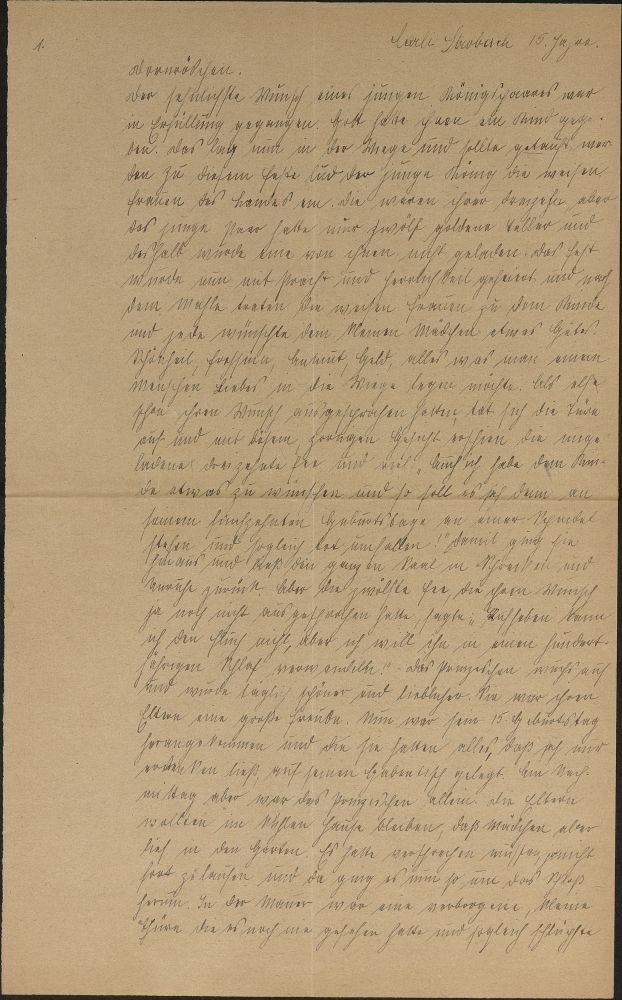 1.
Carll Starbach 15. Jahre.
Dornröschen.
Der sehnlichste Wunsch eines jungen Königspaares war
in Erfüllung gegangen. Gott hatte ihnen ein Kind gege-
ben. Das lag nun in der Wiege und sollte getauft wer-
den zu diesem Feste lud der junge König die weisen
Frauen des Landes ein. Die waren ihrer dreizehn, aber
das junge Paar hatte nur zwölf goldene Teller und
deshalb wurde eine von ihnen nicht geladen. Das Fest
wurde nun mit Pracht und Herrlichkeit gefeiert und nach
dem Mahle traten die weisen Frauen zu dem Kinde
und jede wünschte dem kleinen Mädchen etwas Gutes.
Schönheit, Frohsinn, Anmut, Geld, alles was man einem
Menschen Liebes in die Wiege legen möchte. Als elfe
schon ihren Wunsch ausgesprochen hatten, tat sich die Türe
auf und mit bösem, zornigen Gesicht erschien die unge-
ladene dreizehnte Fee und rief „Auch ich habe dem Kin-
de etwas zu wünschen und so soll es sich denn an
seinem fünfzehnten Geburtstage an einer Spindel
stechen und sogleich tot umfallen!" Damit ging sie
hinaus und ließ den ganzen Saal in Schrecken und
Unruhe zurück. Aber die zwölfte Fee, die ihren Wunsch
ja noch nicht ausgesprochen hatte, sagte: „Aufheben kann
ich den Fluch nicht, aber ich will ihn in einen hundert-
jährigen Schlaf verwandeln." - Das Prinzeschen wuchs auf
und wurde täglich schöner und lieblicher. Sie war ihren
Eltern eine große Freude. Nun war sein 15. Geburtstag
herangekommen und die sie hatten alles, daß sich nur
erdenken ließ, auf seinen Gabentisch gelegt. Am Nach-
mittag aber war das Prinzeschen allein. Die Eltern
wollten im kühlen Hause bleiben, daß Mädchen aber
lief in den Garten. Es hatte versprechen müssen, ja nicht
fort zu laufen und da ging es nun so um das Schloß
herum. In der Mauer war eine verborgene, kleine
Thüre die es noch nie gesehen hatte und sogleich schlüpfte